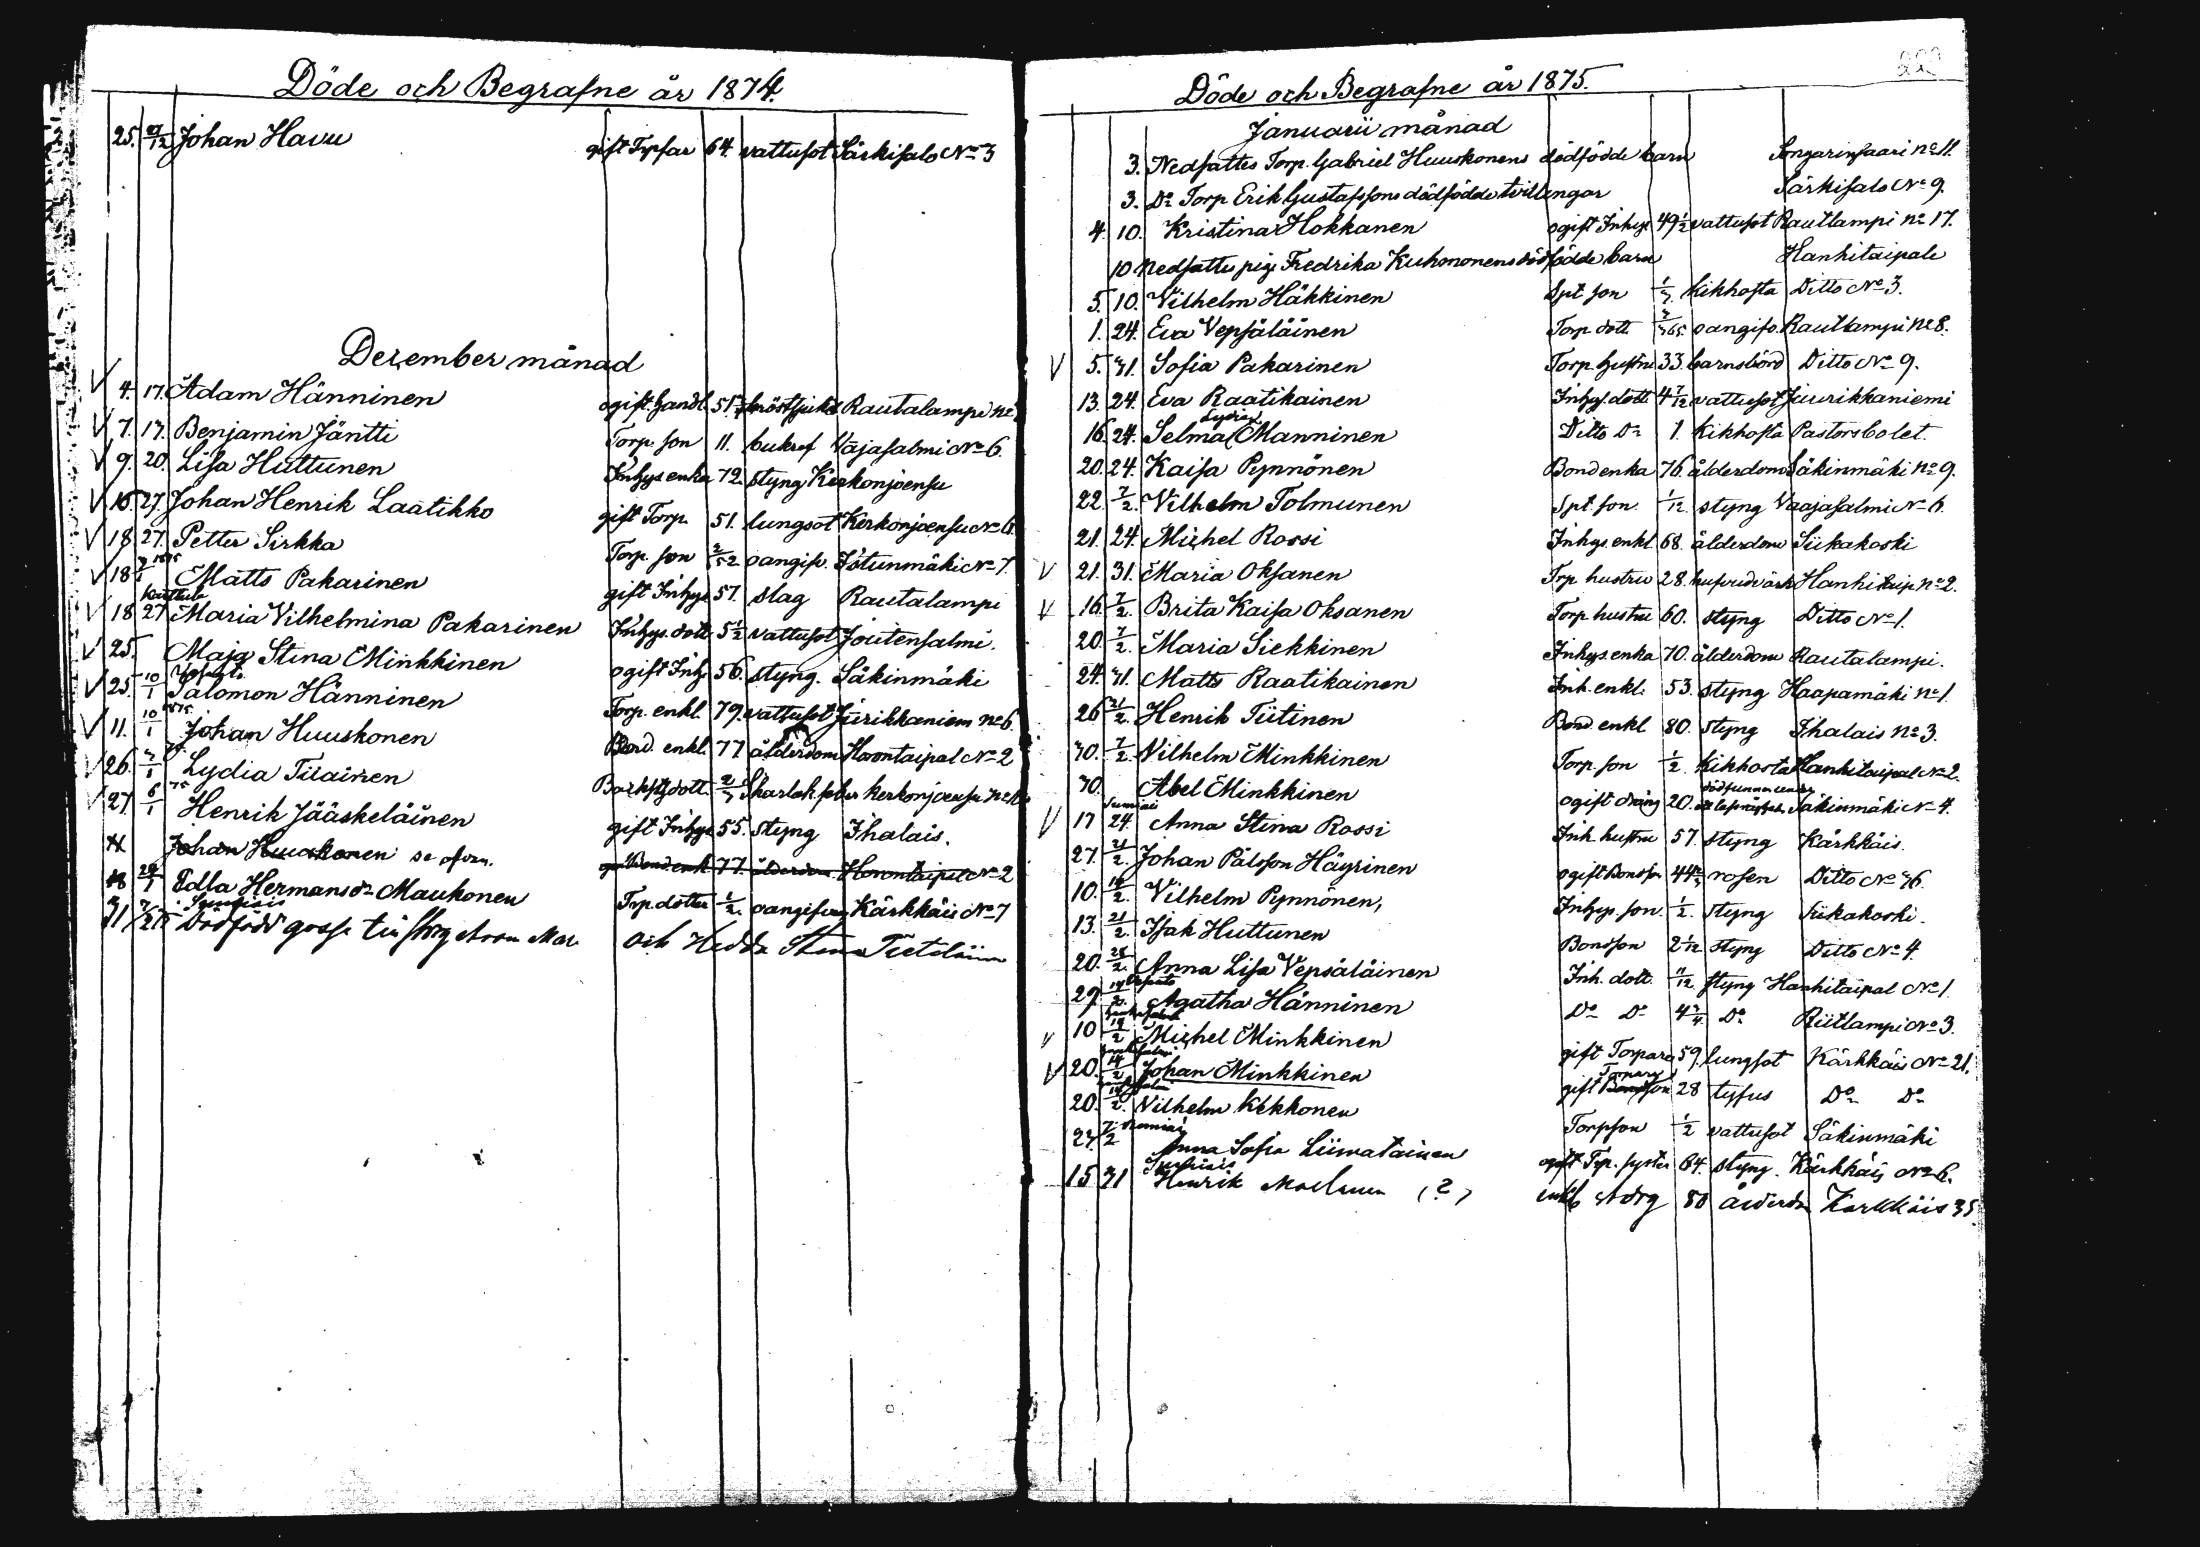 Döde och Begrafne år 1874.
25. Johan Havu gift Typfar 64. vattusot Särkisalo No 3
December månad
V 4. 17. Adam Hänninen ogift handl. 51 Rautalampi
V 7. 17. Benjamin Jäntti Torp. son 11. bukref Vajasalmi No 6
V 9. 20. Lisa Huttunen Inhys enka 72. styng Kerkonjoensu
V 16. 27. Johan Henrik Laatikko gift Torp. 51. lungsot Kerkonjoensu No 6
V 18 27. Petter Sirkka Torp. son 2/52 oangif. Istunmäki No 7.
V 18 1875 Matts Pakarinen gift Inhys 57. slag Rautalampi
V 18 27 Maria Vilhelmina Pakarinen Inhys. dott 5 1/2 vattusot Joutensalmi.
V 25. Maja Stina Minkkinen ogift Inhy 56. styng. Säkinmäki
V 25. 10/1 Salomon Hänninen Torp. enkl. 79. vattusot Jurikkaniem No 6.
V 11. 10/1 1875 Johan Huuskonen Bond. enkl. 77 ålderdom Horontaipal No 2
V 26. 75 Lydia Tiainen dott. Skarlak.feber kerkonjoensu
V 27. 6/1 75 Henrik Jääskeläinen gift Inhys 55. styng Ihalais.
Johan Huuskonen se ofvan. Bond enk 77. ålderdom Horontaipal No 2
18 Edla Hermansdr Maukonen Trp. dotter 1/2. oangifven Kärkkäis No 7
31 Dödfödd gosse och Hedda Stina

Döde och Begrafne år 1875.
Januarii månad
3. Nedsattes Torp. Gabriel Huuskonens dödfödde barn Songarinsaari No 11.
3. Do Torp Erik Gustafssons dödfödde tvillingar Särkisalo No 9.
4. 10. Kristina Hokkanen ogift Inhys 49 1/2 vattusot Rautlampi No 17.
10 Nedsattes pig. Fredrika Kuhmonens dödfödde barn Hankitaipale
5. 10. Vilhelm Häkkinen Spt son kikhosta Ditto No 3.
1. 24. Eva Vepsäläinen Torp. dott. oangifv. Rautlampi No 8.
V 5. 31. Sofia Pakarinen Torp. hustru 33. barnsbörd Ditto No 9.
13. 24. Eva Raatikainen Inhys. dott. 4 7/12 vattusot Jurikkaniemi
16. 24. Selma Lydia Manninen Ditto Do 1. kikhosta Pastorsbolet.
20. 24. Kaisa Pynnönen Bond enka 76 ålderdom Säkinmäki No 9.
22. 7/2. Vilhelm Tolmunen Spt. son. 1/12 styng Vaajasalmi No 6.
21. 24. Michel Rossi Inhys. enkl 68. ålderdom Siikakoski
V 21. 31. Maria Oksanen Trp. hustru 28. Hankitaip No 2.
V 16. 7/2. Brita Kaisa Oksanen Torp. hustru 60. styng Ditto No 1.
20. 7/2. Maria Siekkinen Inhys. enka 70. ålderdom Rautalampi.
24. 31. Matts Raatikainen Inh. enkl. 53. styng Haapamäki No 1.
26 21/2. Henrik Tiitinen Bond enkl 80. styng Ihalais No 3.
30. 7/2. Vilhelm Minkkinen Torp. son 1/2. kikhosta Hankitaipal No 2.
30. Abel Minkkinen ogift dräng 20. Säkinmäki No 4.
V 17 24. Anna Stina Rossi Inh. hustru 57. styng Kärkkäis.
27. 21/2. Johan Pålsson Häyrinen ogift Bondson 44 rosen Ditto No 36.
10. 14/2. Vilhelm Pynnönen, Inhys. son. 1/2. styng Siikakoski.
13. 21/2. Isak Huttunen Bondson 2 1/12 styng Ditto No 4.
20. 28/2. Anna Lisa Vepsäläinen Inh. dott. 11/12 styng Hankitaipal No 1.
29 14/2. Agatha Hänninen Do Do 4 3/4 Do Riitlampi No 3.
V 10 14/2 Michel Minkkinen gift Torpare 59. lungsot Kärkkäis No 21.
V 20. 14/2 Johan Minkkinen gift Torpare 28 tyfus Do Do
20. 14/2. Vilhelm Kekkonen Torpson 1/2 vattusot Säkinmäki
27. 7/2 Anna Sofia Liimatainen ogift Trp. syster 64. styng. Kärkkäis No 6.
15 31 Henrik (?) enkl 80 ålderdm Karkkäis 35.